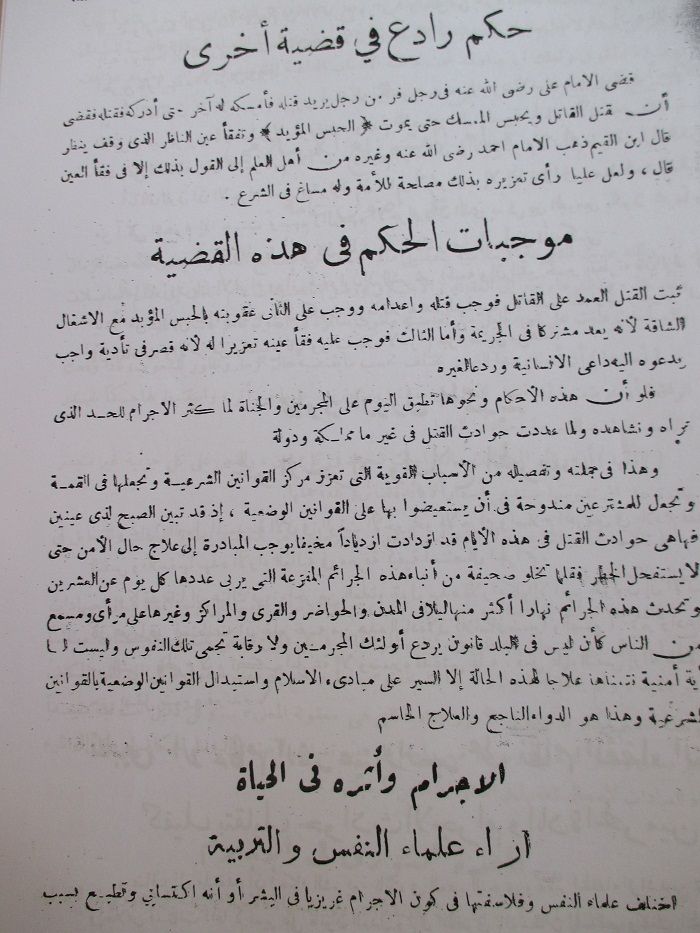 حكم رادع في قضية أخرى
قضى الامام على رضى الله عنه فى رجل فر من رجل يريد قتله فأمسكه له آخر حتى أدركه فقتله فقضى
أن يقتل القاتل ويحبس الممسك حتى يموت « الحبس المؤبد » وتفقأ عين الناظر الذى وقف ينظر
قال ابن القيم ذهب الامام احمد رضى الله عنه وغيره من أهل العلم إلى القول بذلك إلا فى فقأ العين
قال ، ولعل عليا رأى تعزيره بذلك مصلحة للأمة وله مساغ فى الشرع .
موجبات الحكم فى هذه القضية
ثبت القتل العمد على القاتل فوجب قتله واعدامه ووجب على الثانى عقوبته بالحبس المؤبد مع الاشغال
الشاقة لأنه يعد مشتركا فى الجريمة وأما الثالث فوجب عليه فقأ عينه تعزيرا له لانه قصر فى تأدية واجب
يدعوه اليه داعى الانسانية وردعا لغيره
فلو أن هذه الاحكام ونحوها تطبق اليوم على المجرمين والجناة لما كثر الاجرام للحد الذى
نراه ونشاهده ولما عددت حوادث القتل فى غير ما مملكة ودولة
وهذا فى جملته وتفصيله من الأسباب القوية التى تعزز مركز القوانين الشرعية وتجعلها فى القمة
وتجعل للمشترعين مندوحة فى أن يستعيضوا بها على القوانين الوضعية ، إذ قد تبين الصبح لذى عينين
فهاهى حوادث القتل فى هذه الأيام قد ازدادت ازدياداً مخيفا يوجب المبادرة إلى علاج حال الأمن حتى
لا يستفحل الخطر فقلما تخلو صحيفة من أنباء هذه الجرائم المفزعة التى يربى عددها كل يوم عن العشرين
وتحدث هذه الجرائم نهارا أكثر منها ليلا فى المدن والحواضر والقرى والمراكز وغيرها على مرأى ومسمع
من الناس كأن ليس فى البلد قانون يردع أولئك المجرمين ولا رقابة تحمى تلك النفوس وليست لنا
أية أمنية نتمناها علاجا لهذه الحالة إلا السير على مبادىء الاسلام واستبدال القوانين الوضعية بالقوانين
الشرعية وهذا هو الدواء الناجع والعلاج الحاسم
الاجرام وأثره فى الحياة
اراء علماء النفس والتربية
اختلف علماء النفس وفلاسفتها فى كون الاجرام غريزيا فى البشر أو أنه اكتسابي وتطبع بسبب